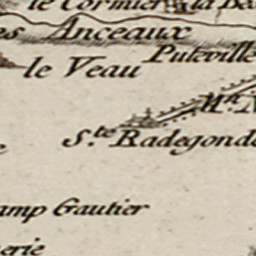 le Cormier
Anceaux
Puteville
le Veau
Mn
S.te Radegonde
Gautier